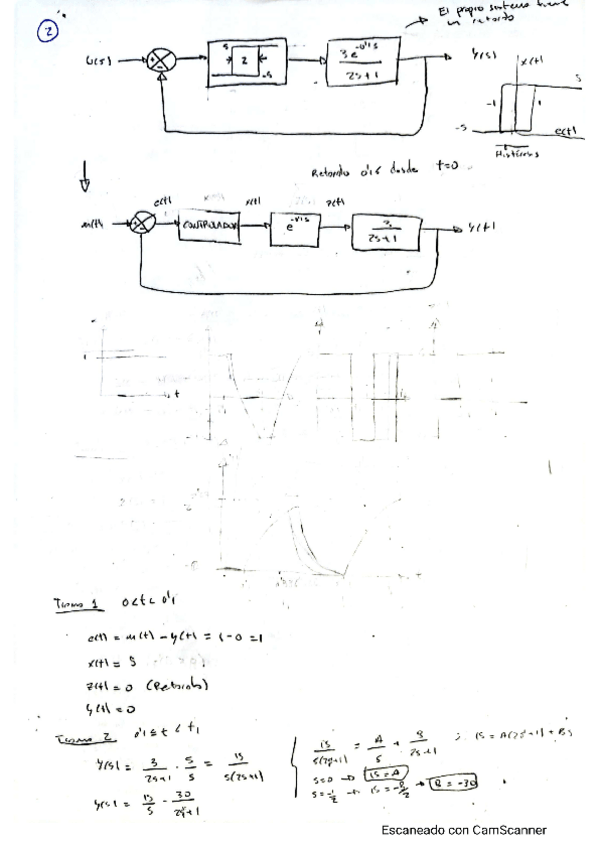 El propio sistema tiene
un retardo
2
U(s)
+
-
5
2
-5
3e^-0'1s
2s+1
Y(s)
x(t)
5
-1
1
-5
e(t)
Histéresis
Retardo 0'1s desde t=0
e(t)
x(t)
z(t)
m(t)
+
-
CONTROLADOR
e^-0'1s
3
2s+1
y(t)
t
t
Tramo 1 0<t<0'1
e(t) = m(t) - y(t) = 1-0 = 1
x(t) = 5
z(t) = 0 (Retardo)
y(t) = 0
Tramo 2 0'1≤t<t1
Y(s) = 3/2s+1 · 5/s = 15/s(2s+1)
Y(s) = 15/s - 30/2s+1
15/s(2s+1) = A/s + B/2s+1 ; 15 = A(2s+1) + Bs
s=0 → 15=A
s=-1/2 → 15=-B/2 → B=-30
Escaneado con CamScanner